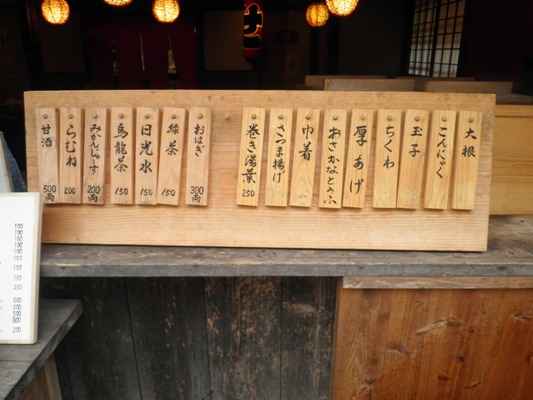 大根
こんにゃく
玉子
ちくわ
厚あげ
おさかなとうふ
巾着
さつま揚げ
巻き湯葉 250
おはぎ 300両
緑茶 150
日光水 150
烏龍茶 150
みかんじゅーす 200両
らむね 200
甘酒 500両